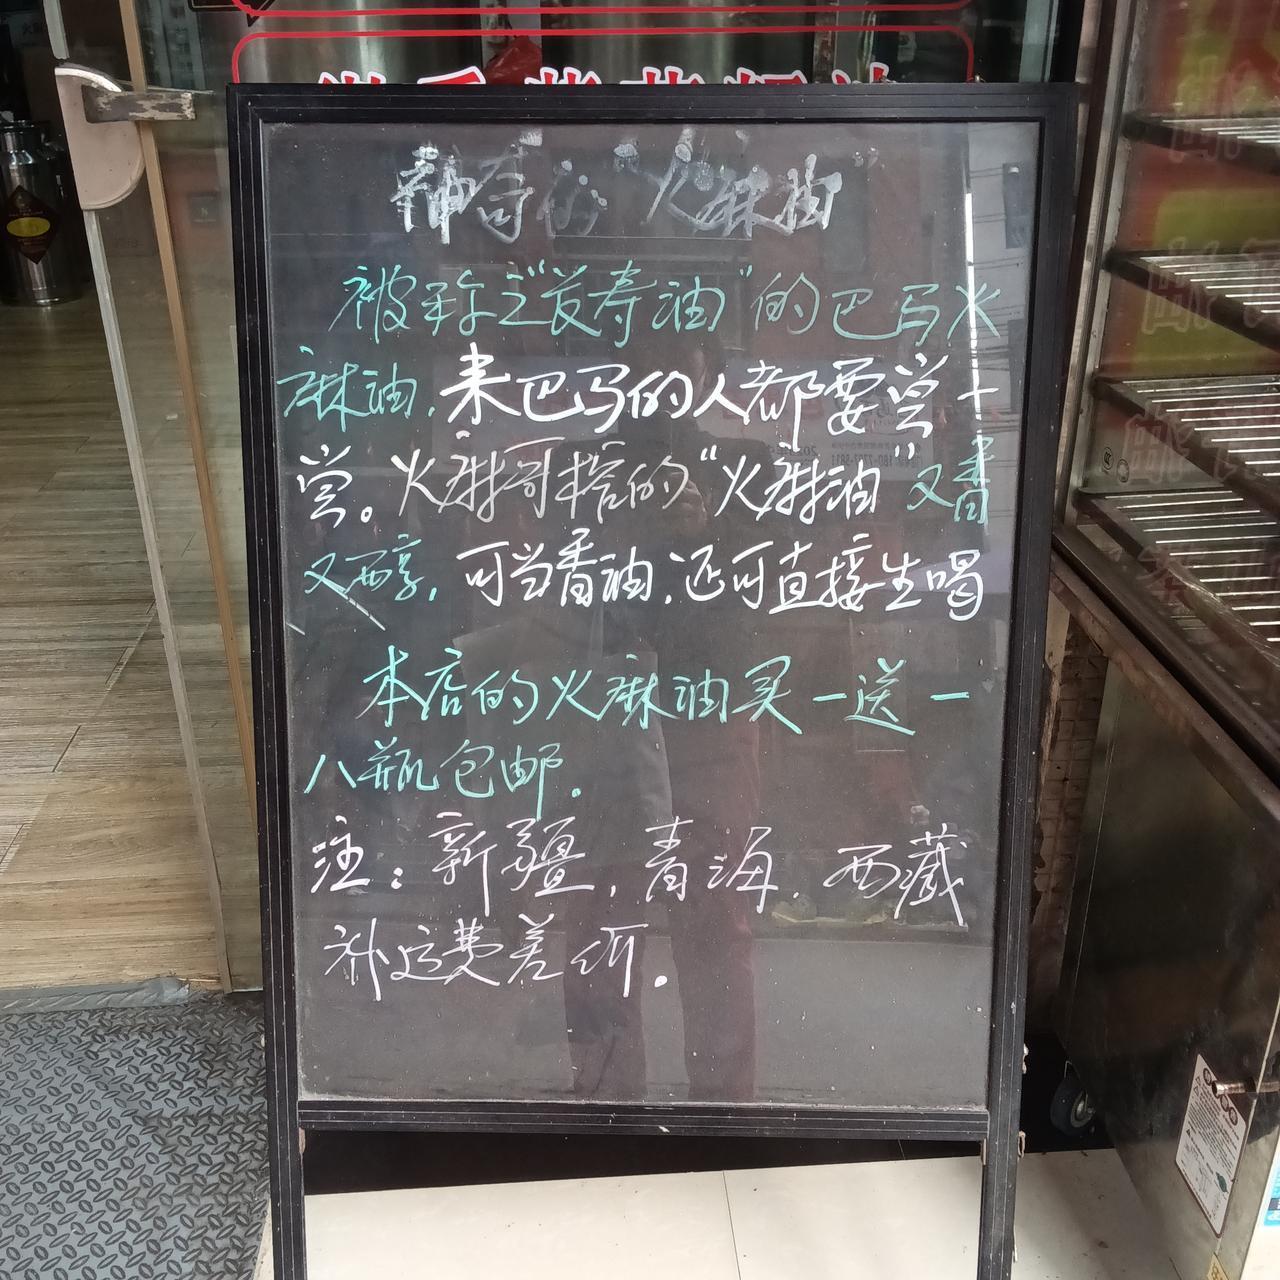 神奇的“火麻油”
被称之“长寿油”的巴马火
麻油，来巴马的人都要尝一
尝。火麻哥榨的“火麻油”又香
又西享，可当香油，还可直接生喝
本店的火麻油买一送一
八瓶包邮。
注：新疆，青海，西藏
补运费差价。